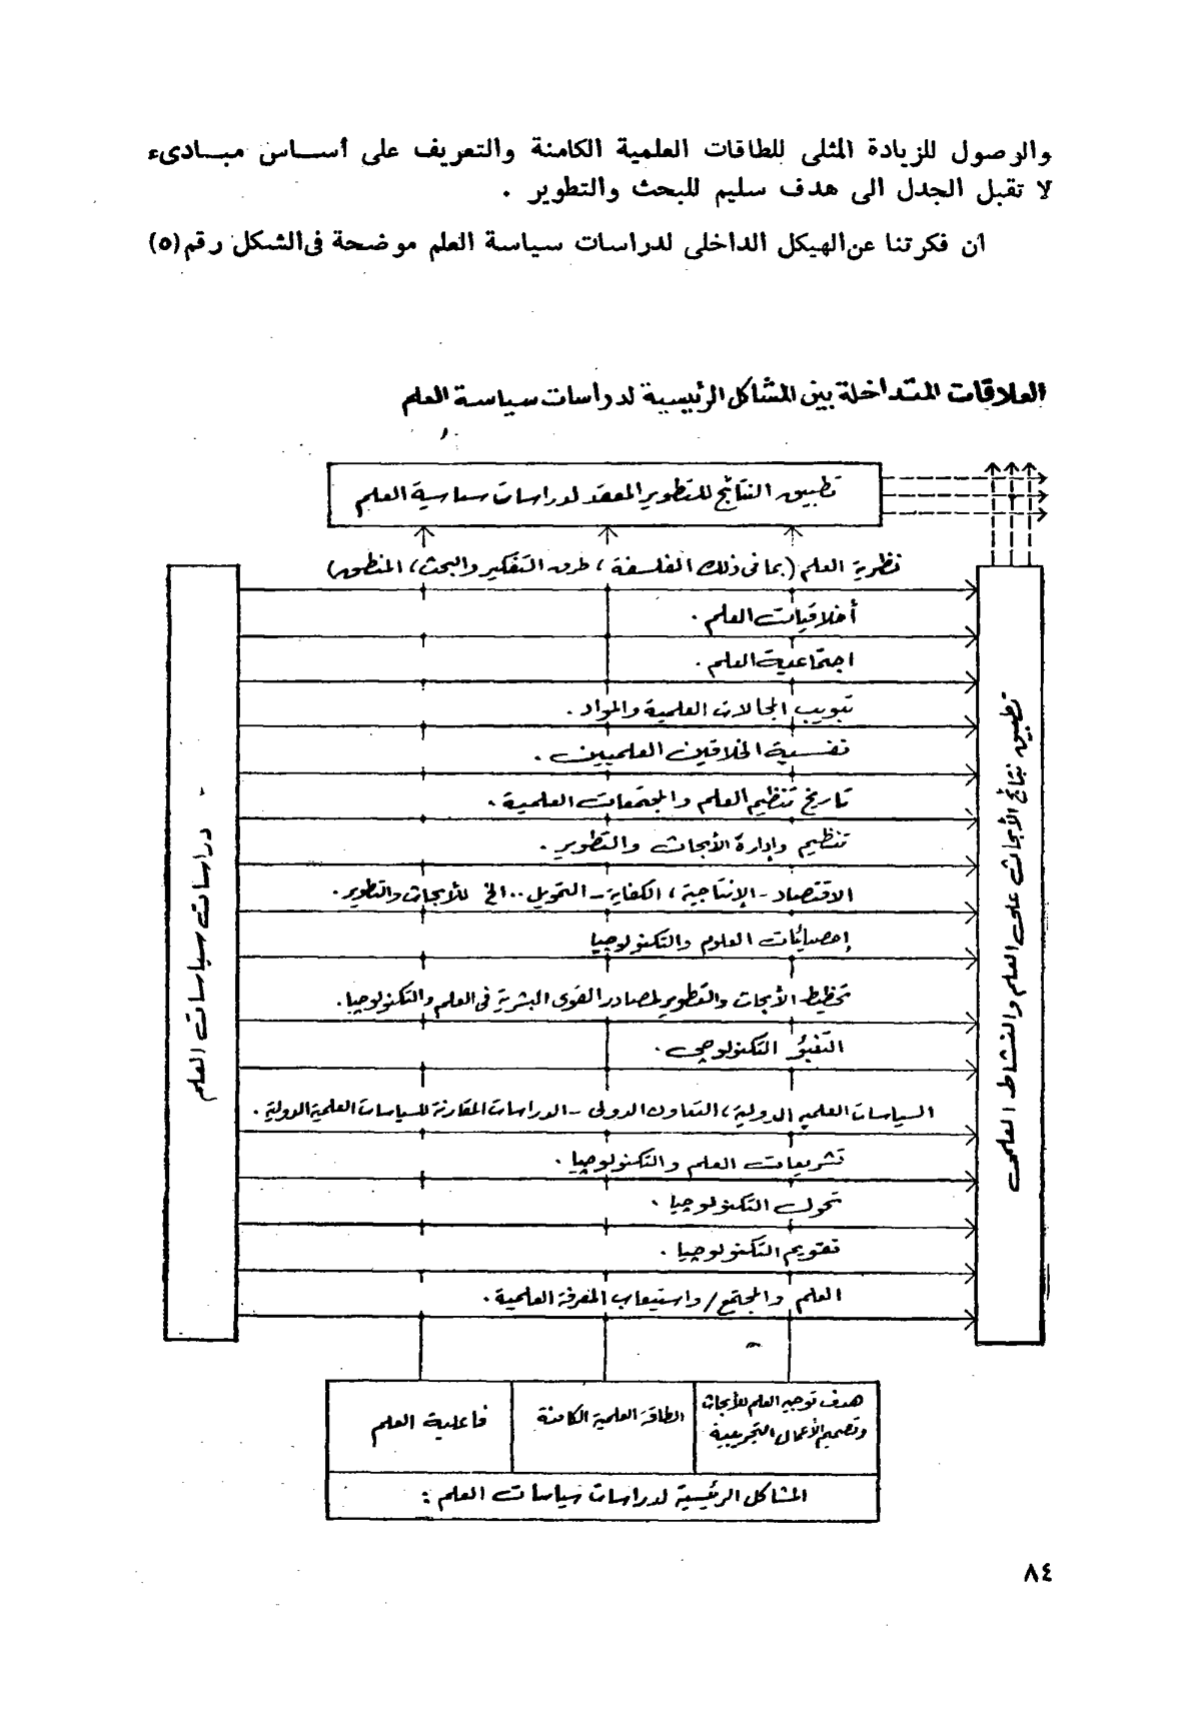 والوصول للزيادة المثلى للطاقات العلمية الكامنة والتعريف على أساس مبادىء
لا تقبل الجدل الى هدف سليم للبحث والتطوير .
ان فكرتنا عن الهيكل الداخلى لدراسات سياسة العلم موضحة فى الشكل رقم (٥)
العلاقات المتداخلة بين المشاكل الرئيسية لدراسات سياسة العلم
تطبيق النتائج للتطوير المعقد لدراسات سياسة العلم
نظرية العلم (بما فى ذلك الفلسفة ، طرق التفكير والبحث ، المنطق)
أخلاقيات العلم .
اجتماعية العلم .
تبويب المجالات العلمية والمواد .
نفسية الخلاقين العلميين .
تاريخ تنظيم العلم والمجتمعات العلمية .
تنظيم وإدارة الأبحاث والتطوير .
الاقتصاد - الإنتاجية ، الكفاية - التمويل .. الخ للأبحاث والتطوير .
إحصائيات العلوم والتكنولوجيا
تخطيط الأبحاث والتطوير لمصادر القوى البشرية فى العلم والتكنولوجيا .
التنبؤ التكنولوجى .
السياسات العلمية الدولية ، التعاون الدولى - الدراسات المقارنة للسياسات العلمية الدولية .
تشريعات العلم والتكنولوجيا .
تحول التكنولوجيا .
تقويم التكنولوجيا .
العلم والمجتمع / واستيعاب المعرفة العلمية .
دراسات سياسات العلم
تطبيق نتائج الأبحاث على العلم والنشاط العلمى
هدف توجيه العلم للأبحاث
وتصميم الأعمال التجريبية
الطاقة العلمية الكامنة
فاعلية العلم
المشاكل الرئيسية لدراسات سياسات العلم :
٨٤